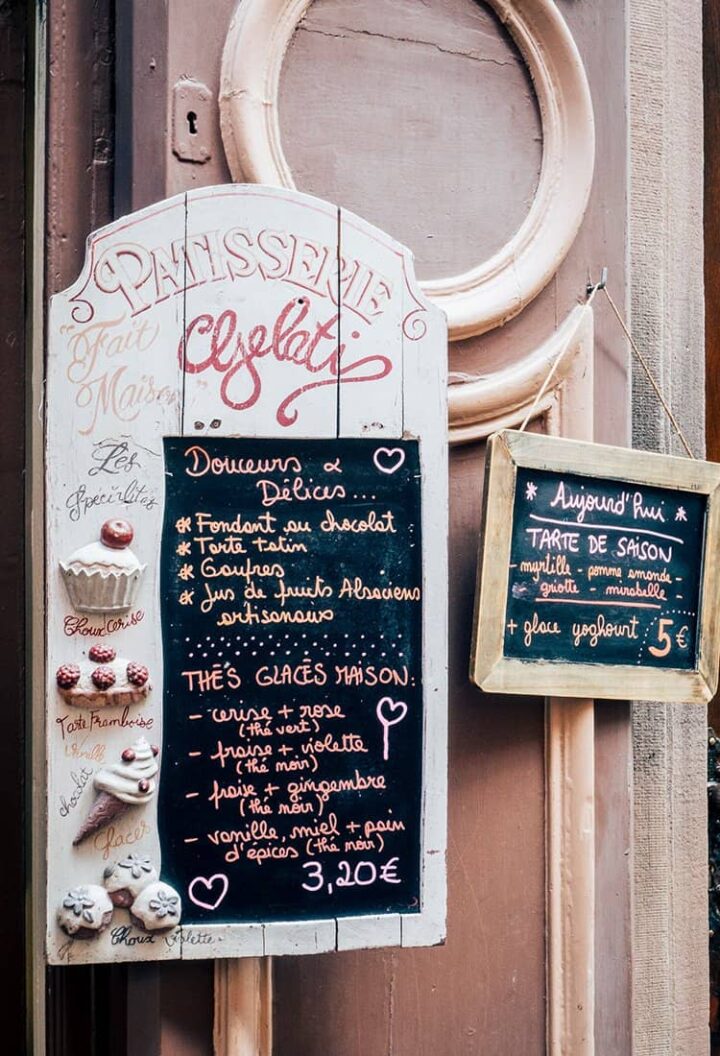 PATISSERIE
Gelati
"Fait
Maison"
Les
Spécialités
Choux Cerise
Tarte Framboise
Vanille
chocolat
Glaces
Choux Violette
Douceurs &
Délices...
* Fondant au chocolat
* Tarte tatin
* Gaufres
* Jus de fruits Alsaciens
artisanaux
THÉS GLACÉS MAISON:
- cerise + rose
(thé vert)
- fraise + violette
(thé noir)
- fraise + gingembre
(thé noir)
- vanille, miel + pain
d'épices (thé noir)
3,20€
* Aujourd'hui *
TARTE DE SAISON
- myrtille - pomme amande -
griotte - mirabelle -
+ glace yoghourt 5€